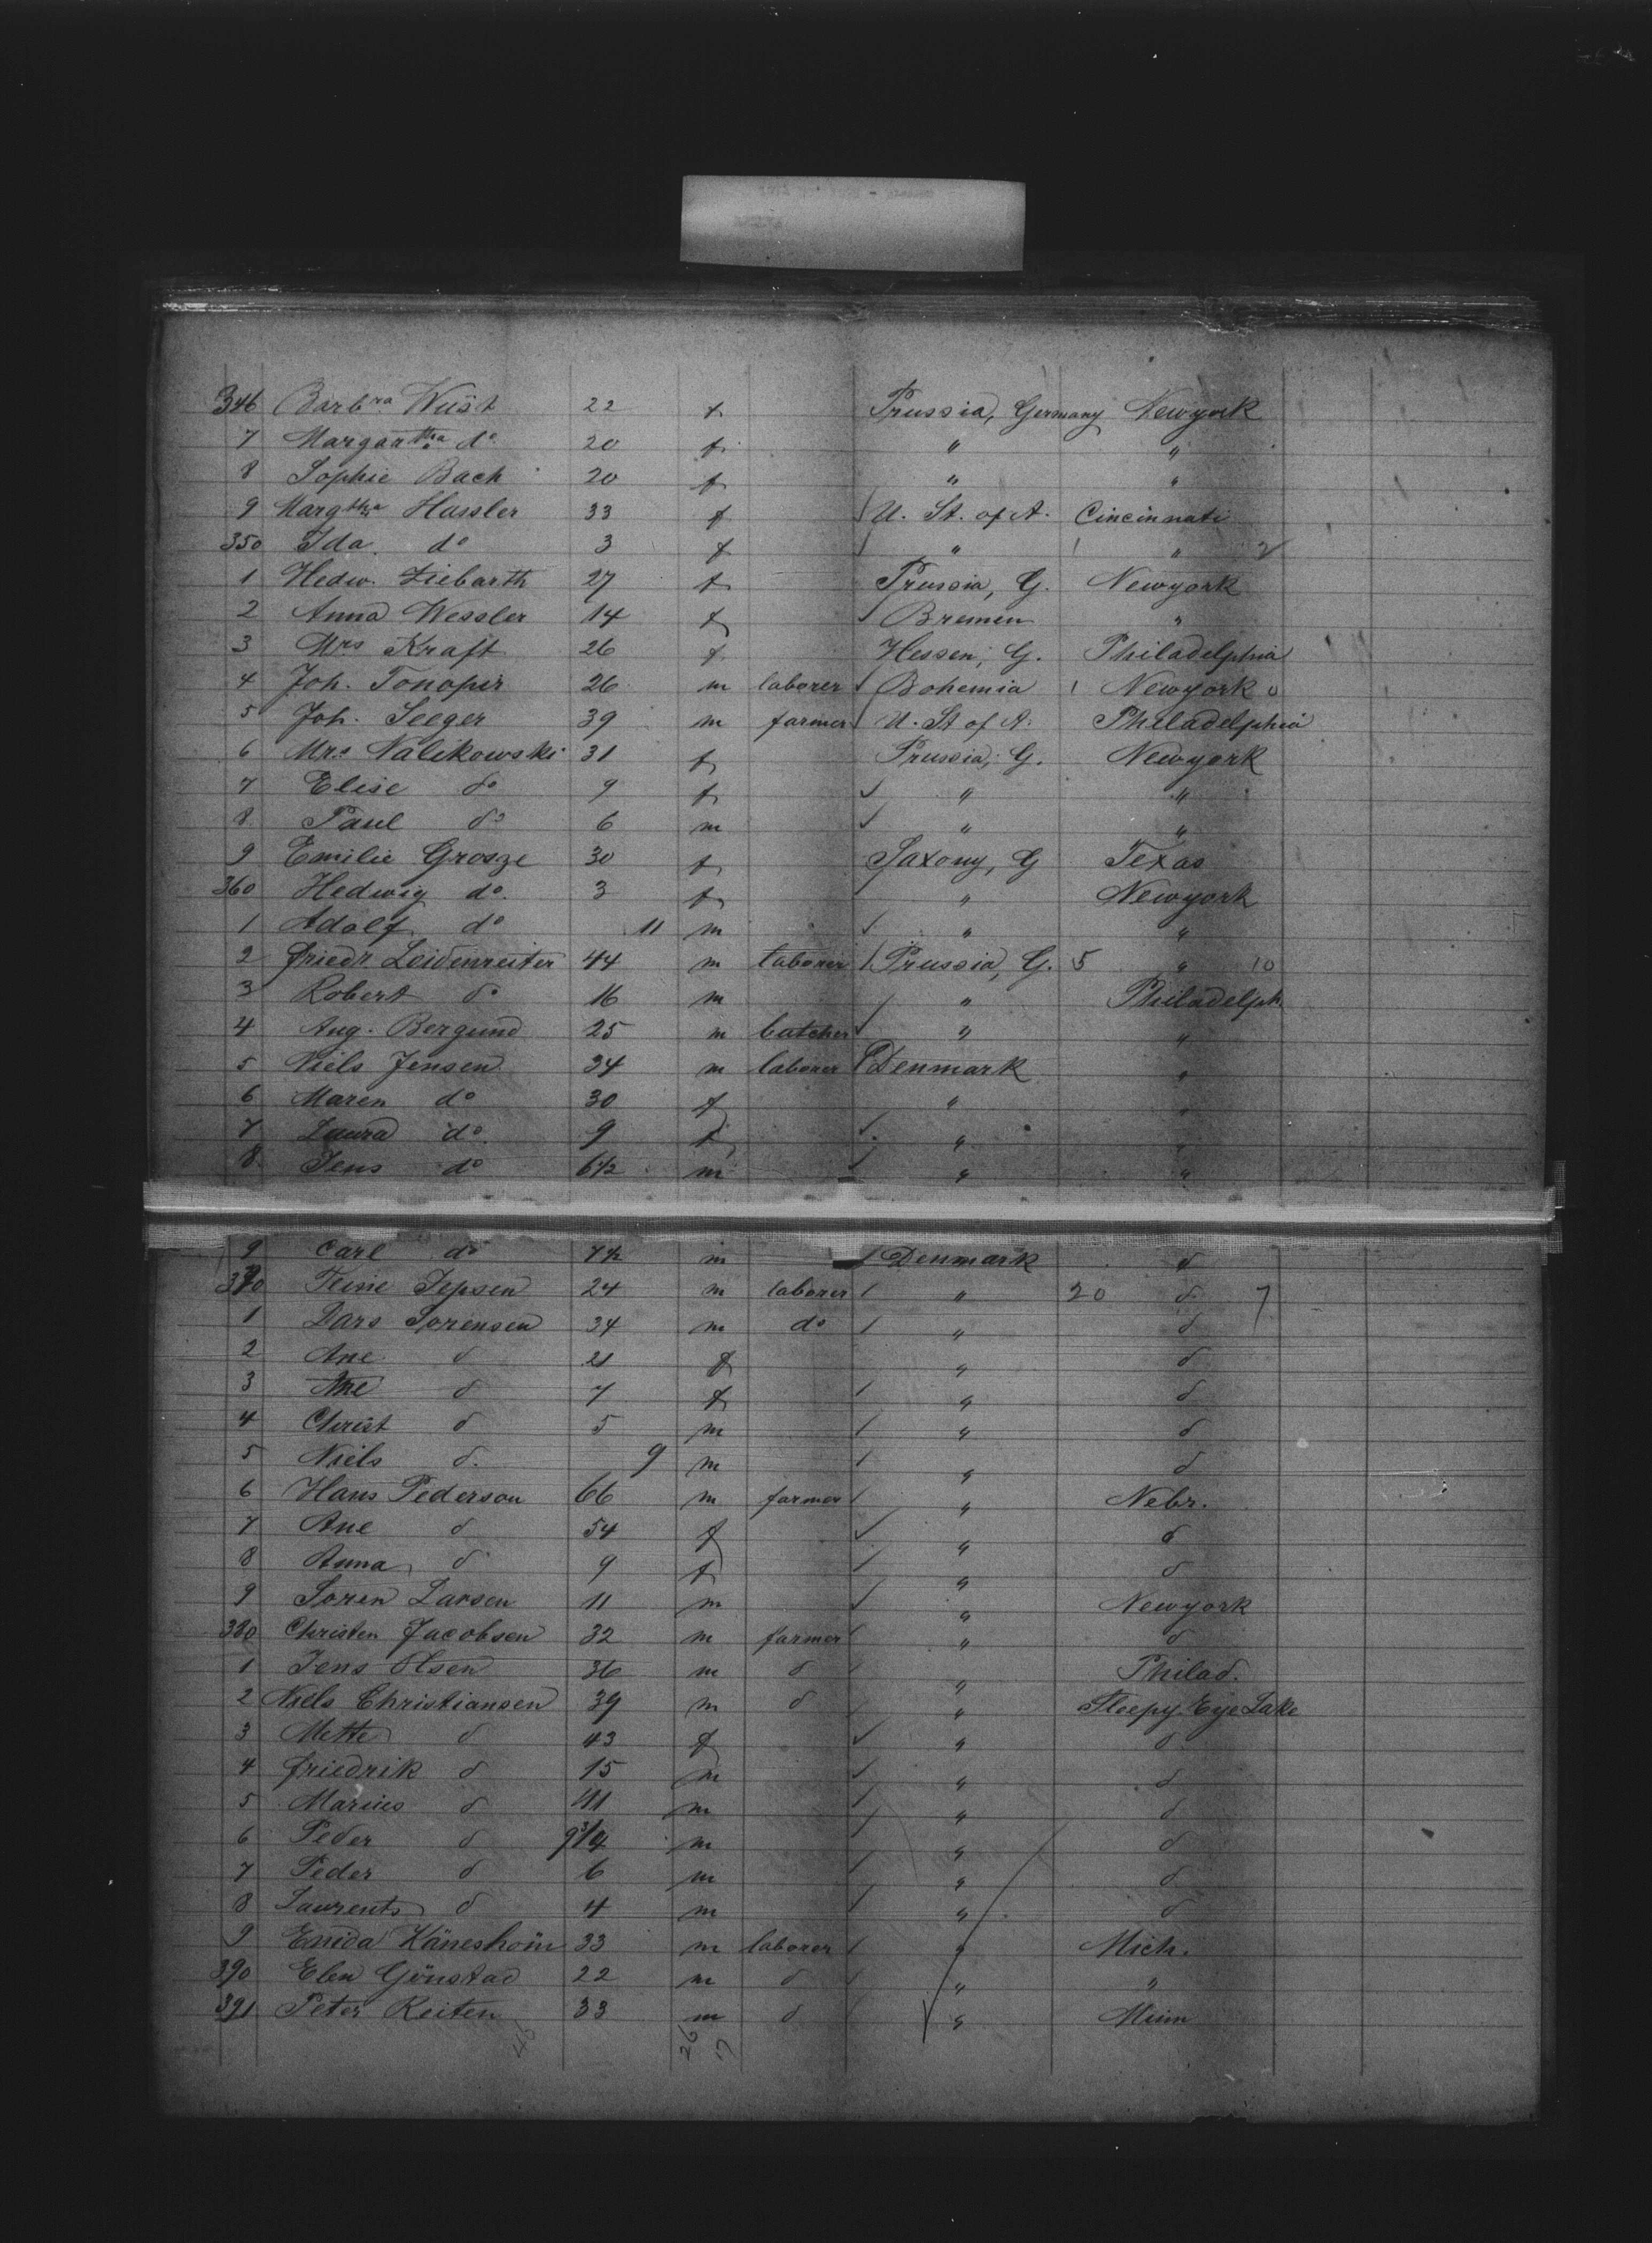 346 Barbra Wüst 22 f Prussia, Germany Newyork
7 Margartha do 20 f " "
8 Sophie Bach 20 f " "
9 Margtha Hassler 33 f U. St. of A. Cincinnati
350 Ida do 3 f " "
1 Hedw. Ziebarth 27 f Prussia, G. Newyork
2 Anna Wessler 14 f Bremen "
3 Mrs Kraft 26 f Hessen, G. Philadelphia
4 Joh. 26 m laborer Bohemia 1 Newyork 0
5 Joh. Seeger 39 m farmer U. St of A. Philadelphia
6 Mrs Nalikowski 31 f Prussia, G. Newyork
7 Elise do 9 f " "
8 Paul do 6 m " "
9 Emilie Grosze 30 f Saxony, G Texas
360 Hedwig do 3 f " Newyork
1 Adolf do 11 m " "
2 Friedr. Leidenreiter 44 m laborer Prussia, G. 5 " 10
3 Robert do 16 m " Philadelph
4 Aug. Bergund 25 m butcher " "
5 Niels Jensen 34 m laborer Denmark "
6 Maren do 30 f " "
7 Laura do 9 f " "
8 Jens do 6 1/2 m " "
9 Carl do m Denmark d
370 Jepsen 24 m laborer " 20 d 7
1 Lars Sorensen 34 m do " d
2 Ane d 21 f " d
3 Ane d 7 f " d
4 Christ d 5 m " d
5 Niels d. 9 m " d
6 Hans Pederson 66 m farmer " Nebr.
7 Ane d 54 f " d
8 Anna d 9 f " d
9 Soren Larsen 11 m " Newyork
380 Christen Jacobsen 32 m farmer " d
1 Jens Olsen 36 m d " Philad.
2 Niels Christiansen 39 m d " Sleepy Eye Lake
3 Mette d 43 f " d
4 Friedrik d 15 m " d
5 Marius d 11 m " d
6 Peder d 9 3/4 m " d
7 Peder d 6 m " d
8 Laurents d 4 m " d
9 33 m laborer " Mich.
390 Elen Gönstad 22 m d " "
391 Peter Reiten 33 m d " Minn
46 26 17